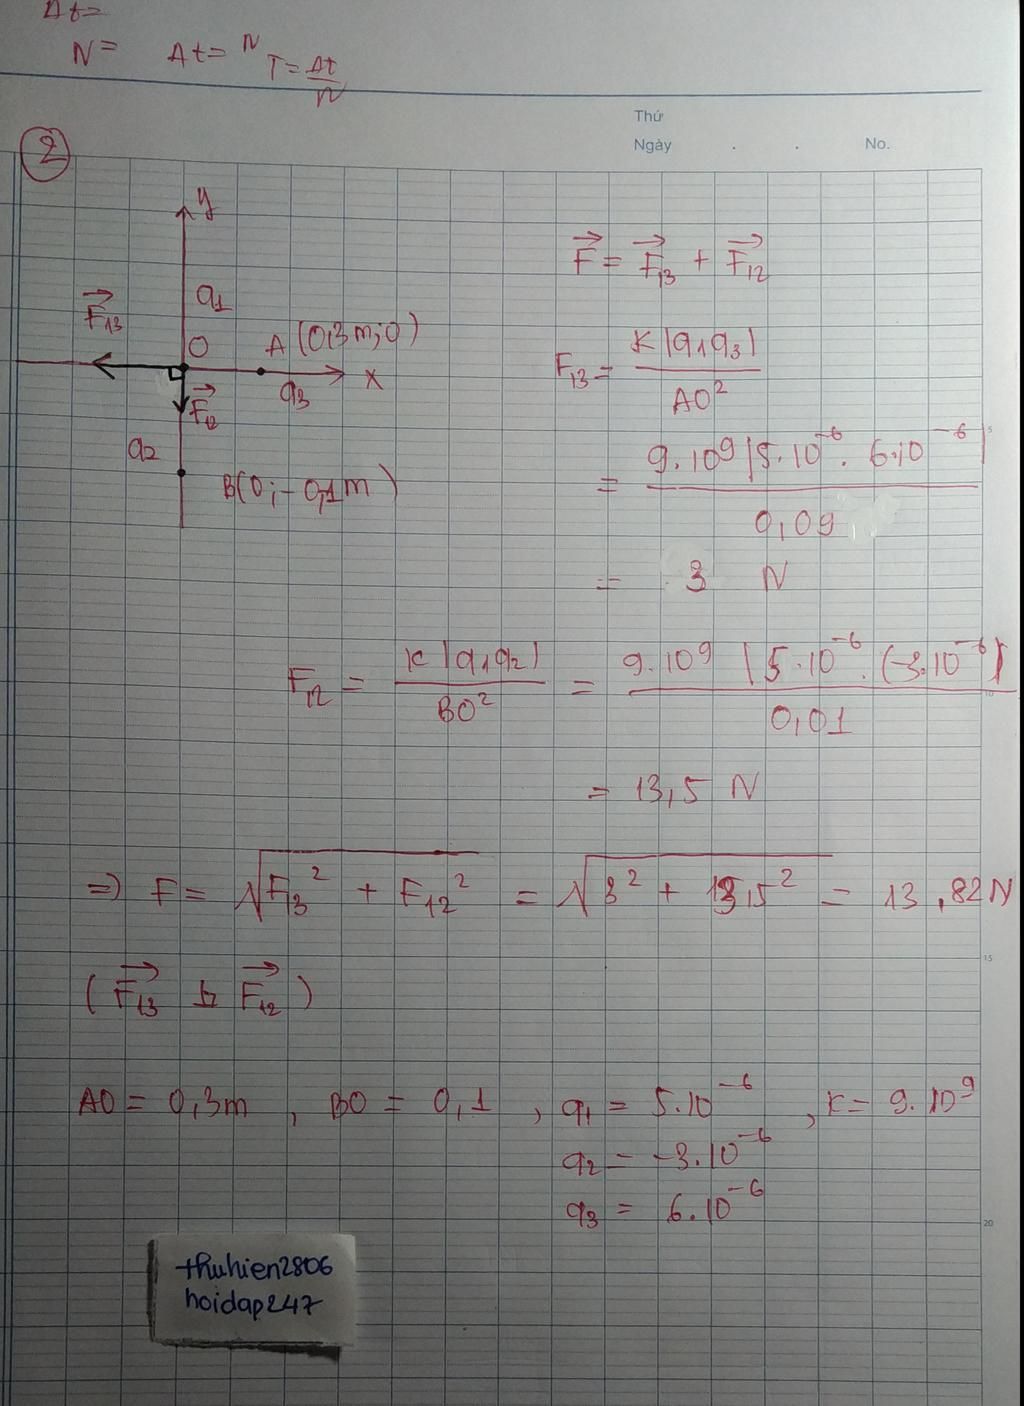 Δt=
N= Δt= N T= Δt/N
Thứ
Ngày . . No.
2
y
q1
F13
O
A (0,3m;0)
x
F12
q3
q2
B(0;-0,1m)
F = F13 + F12
F13 = K|q1q3| / AO²
= 9.10⁹|5.10⁻⁶. 6.10⁻⁶| / 0,09
5
= 3 N
F12 = K|q1q2| / BO² = 9.10⁹ |5.10⁻⁶.(-3.10⁻⁶)| / 0,01
10
= 13,5 N
=> F = √F13² + F12² = √3² + 13,5² = 13,82N
15
(F13 ⊥ F12)
AO = 0,3m , BO = 0,1 , q1 = 5.10⁻⁶ , K = 9.10⁹
q2 = -3.10⁻⁶
q3 = 6.10⁻⁶
20
thuhien2806
hoidap247